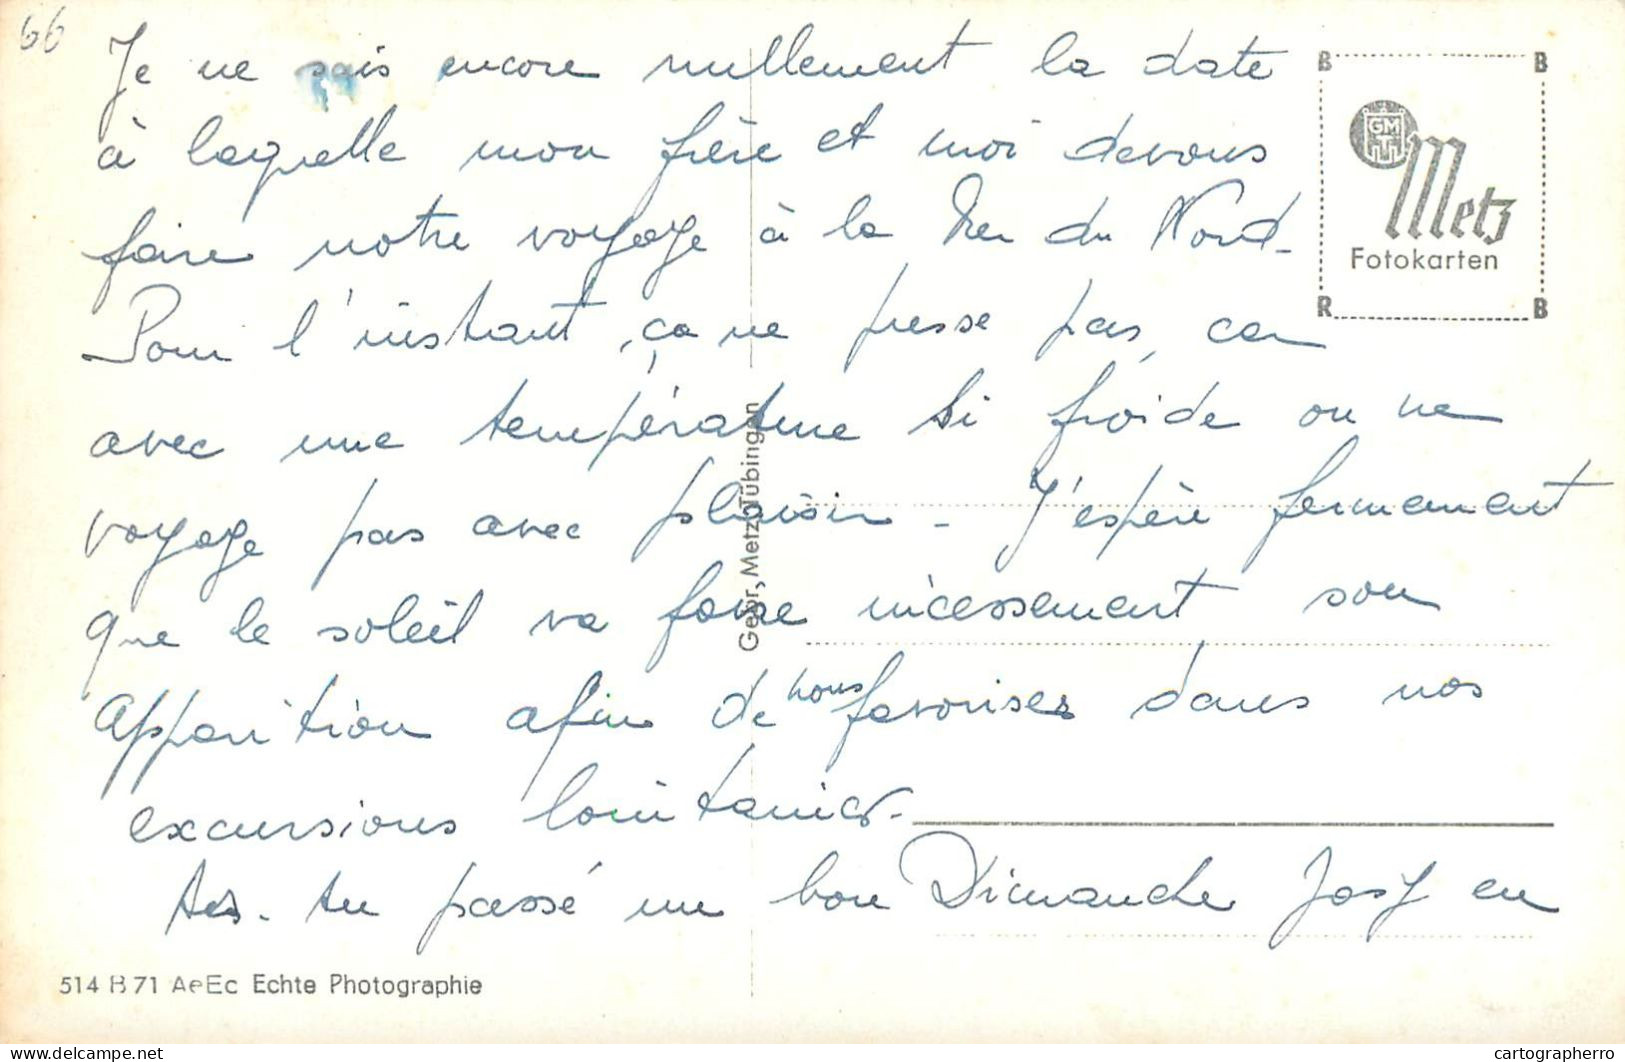 66
Je ne sais encore nullement la date
à laquelle mon frère et moi devons
faire notre voyage à la Mer du Nord-
Pour l'instant, ça ne presse pas, car
avec une température si froide on ne
voyage pas avec plaisir - J'espère fermement
que le soleil va faire incessement son
apparition afin de nous favoriser dans nos
excursions lointaines.
As-tu passé un bon Dimanche Josy en
B B
GM
Metz
Fotokarten
R B
Gebr, Metz, Tübingen
514 B 71 AeEc Echte Photographie
cartographe.com cartographerro